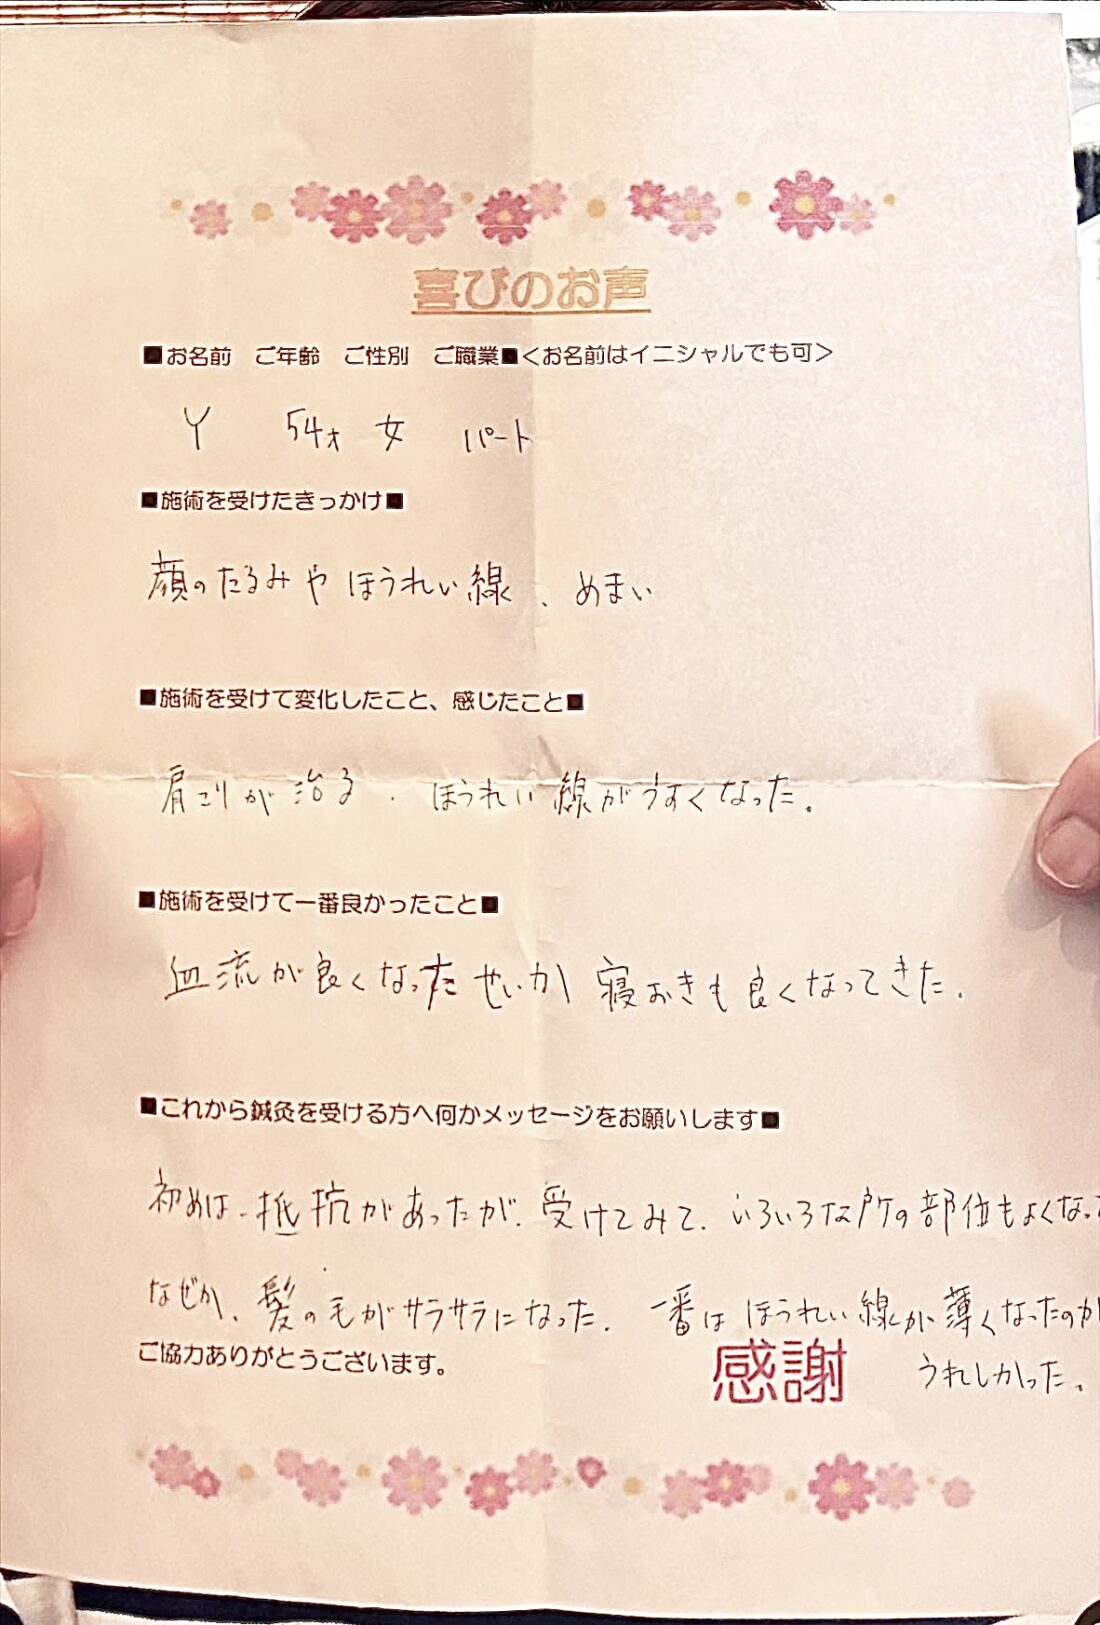 喜びのお声
■お名前　ご年齢　ご性別　ご職業■＜お名前はイニシャルでも可＞
Y　54才　女　パート
■施術を受けたきっかけ■
顔のたるみや ほうれい線、めまい
■施術を受けて変化したこと、感じたこと■
肩こりが治る、ほうれい線がうすくなった。
■施術を受けて一番良かったこと■
血流が良くなったせいか 寝おきも良くなってきた。
■これから鍼灸を受ける方へ何かメッセージをお願いします■
初めは、抵抗があったが、受けてみて、いろいろな所の部位もよくなって
なぜか、髪の毛がサラサラになった。 一番は ほうれい線が薄くなったのが
ご協力ありがとうございます。
感謝　うれしかった。